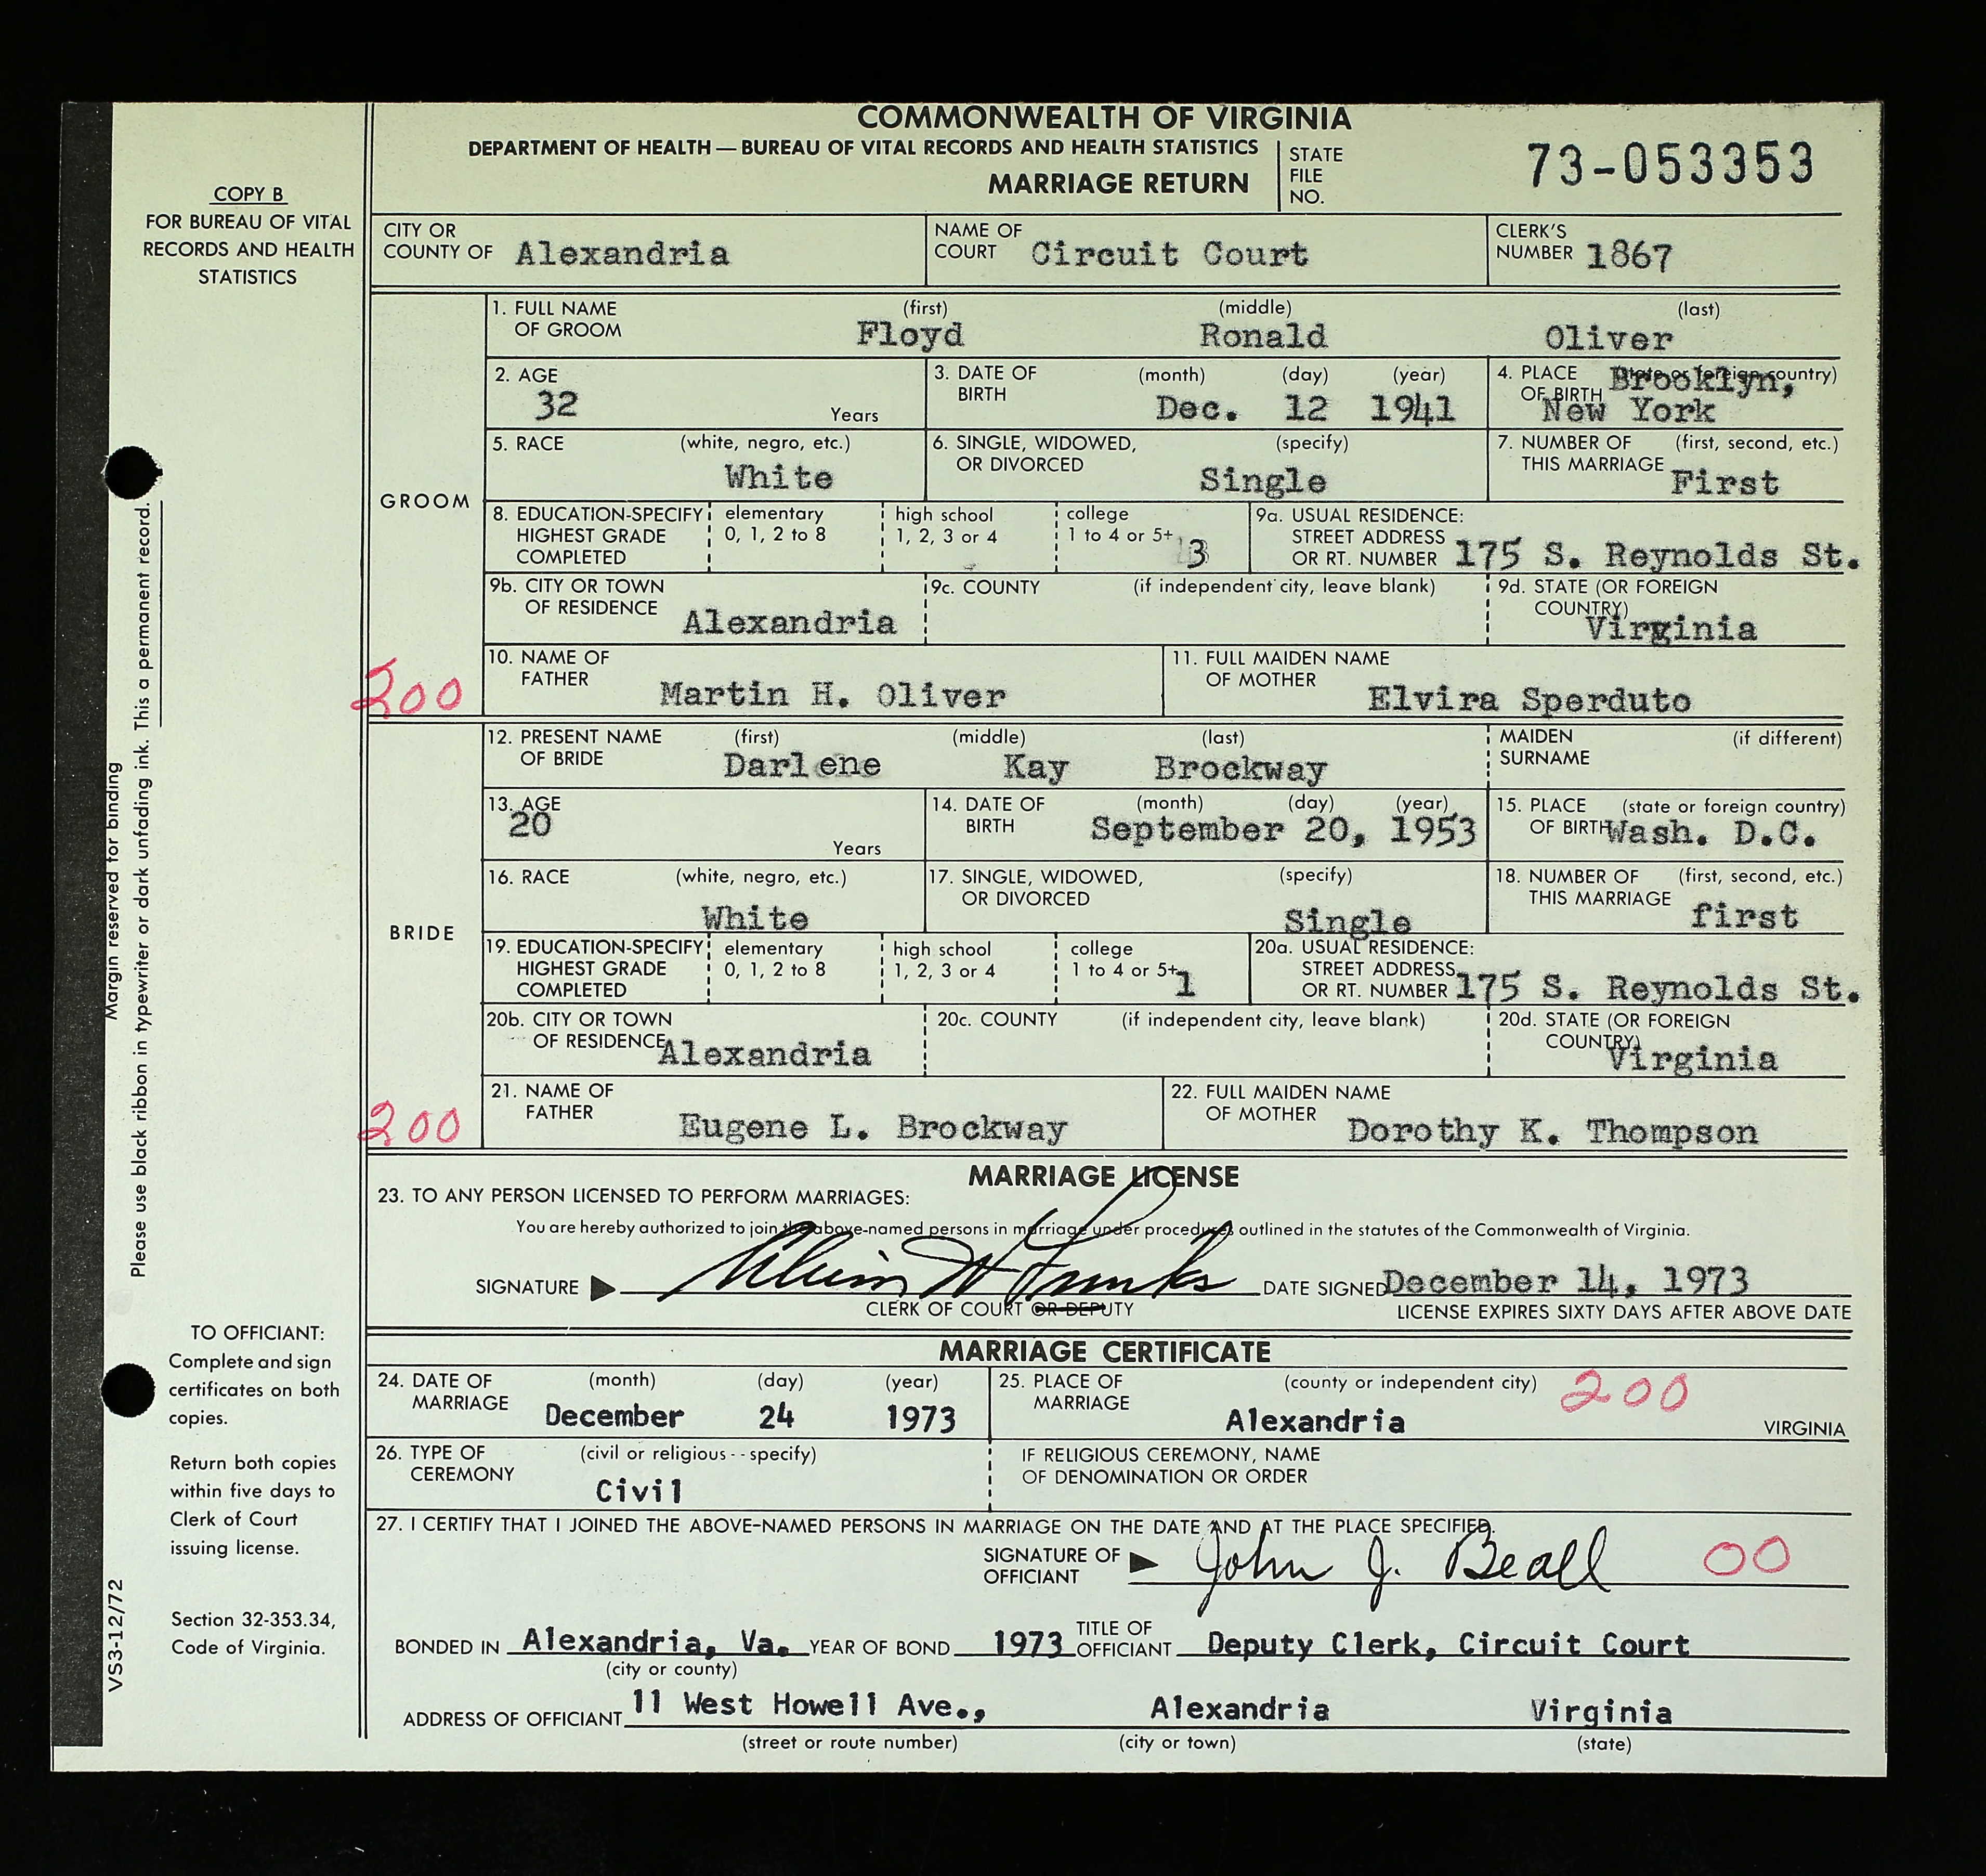 COMMONWEALTH OF VIRGINIA
DEPARTMENT OF HEALTH — BUREAU OF VITAL RECORDS AND HEALTH STATISTICS
MARRIAGE RETURN
STATE FILE NO. 73-053353
COPY B
FOR BUREAU OF VITAL
RECORDS AND HEALTH
STATISTICS
CITY OR COUNTY OF Alexandria NAME OF COURT Circuit Court CLERK'S NUMBER 1867
GROOM
1. FULL NAME OF GROOM (first) Floyd (middle) Ronald (last) Oliver
2. AGE 32 Years 3. DATE OF BIRTH (month) Dec. (day) 12 (year) 1941 4. PLACE OF BIRTH (state or foreign country) Brooklyn, New York
5. RACE (white, negro, etc.) White 6. SINGLE, WIDOWED, OR DIVORCED (specify) Single 7. NUMBER OF THIS MARRIAGE (first, second, etc.) First
8. EDUCATION-SPECIFY HIGHEST GRADE COMPLETED elementary 0, 1, 2 to 8 high school 1, 2, 3 or 4 college 1 to 4 or 5+ 3 9a. USUAL RESIDENCE: STREET ADDRESS OR RT. NUMBER 175 S. Reynolds St.
9b. CITY OR TOWN OF RESIDENCE Alexandria 9c. COUNTY (if independent city, leave blank) 9d. STATE (OR FOREIGN COUNTRY) Virginia
10. NAME OF FATHER Martin H. Oliver 11. FULL MAIDEN NAME OF MOTHER Elvira Sperduto
200
BRIDE
12. PRESENT NAME OF BRIDE (first) Darlene (middle) Kay (last) Brockway MAIDEN SURNAME (if different)
13. AGE 20 Years 14. DATE OF BIRTH (month) (day) (year) September 20, 1953 15. PLACE OF BIRTH (state or foreign country) Wash. D.C.
16. RACE (white, negro, etc.) White 17. SINGLE, WIDOWED, OR DIVORCED (specify) Single 18. NUMBER OF THIS MARRIAGE (first, second, etc.) first
19. EDUCATION-SPECIFY HIGHEST GRADE COMPLETED elementary 0, 1, 2 to 8 high school 1, 2, 3 or 4 college 1 to 4 or 5+ 1 20a. USUAL RESIDENCE: STREET ADDRESS OR RT. NUMBER 175 S. Reynolds St.
20b. CITY OR TOWN OF RESIDENCE Alexandria 20c. COUNTY (if independent city, leave blank) 20d. STATE (OR FOREIGN COUNTRY) Virginia
21. NAME OF FATHER Eugene L. Brockway 22. FULL MAIDEN NAME OF MOTHER Dorothy K. Thompson
200
MARRIAGE LICENSE
23. TO ANY PERSON LICENSED TO PERFORM MARRIAGES:
You are hereby authorized to join the above-named persons in marriage under procedures outlined in the statutes of the Commonwealth of Virginia.
SIGNATURE DATE SIGNED December 14, 1973
CLERK OF COURT OR DEPUTY LICENSE EXPIRES SIXTY DAYS AFTER ABOVE DATE
MARRIAGE CERTIFICATE
24. DATE OF MARRIAGE (month) December (day) 24 (year) 1973 25. PLACE OF MARRIAGE (county or independent city) Alexandria 200 VIRGINIA
26. TYPE OF CEREMONY (civil or religious -- specify) Civil IF RELIGIOUS CEREMONY, NAME OF DENOMINATION OR ORDER
27. I CERTIFY THAT I JOINED THE ABOVE-NAMED PERSONS IN MARRIAGE ON THE DATE AND AT THE PLACE SPECIFIED.
SIGNATURE OF OFFICIANT John J. Beall 00
BONDED IN Alexandria, Va. YEAR OF BOND 1973 TITLE OF OFFICIANT Deputy Clerk, Circuit Court
(city or county)
ADDRESS OF OFFICIANT 11 West Howell Ave., Alexandria Virginia
(street or route number) (city or town) (state)
Margin reserved for binding
Please use black ribbon in typewriter or dark unfading ink. This a permanent record.
TO OFFICIANT:
Complete and sign
certificates on both
copies.
Return both copies
within five days to
Clerk of Court
issuing license.
Section 32-353.34,
Code of Virginia.
VS3-12/72